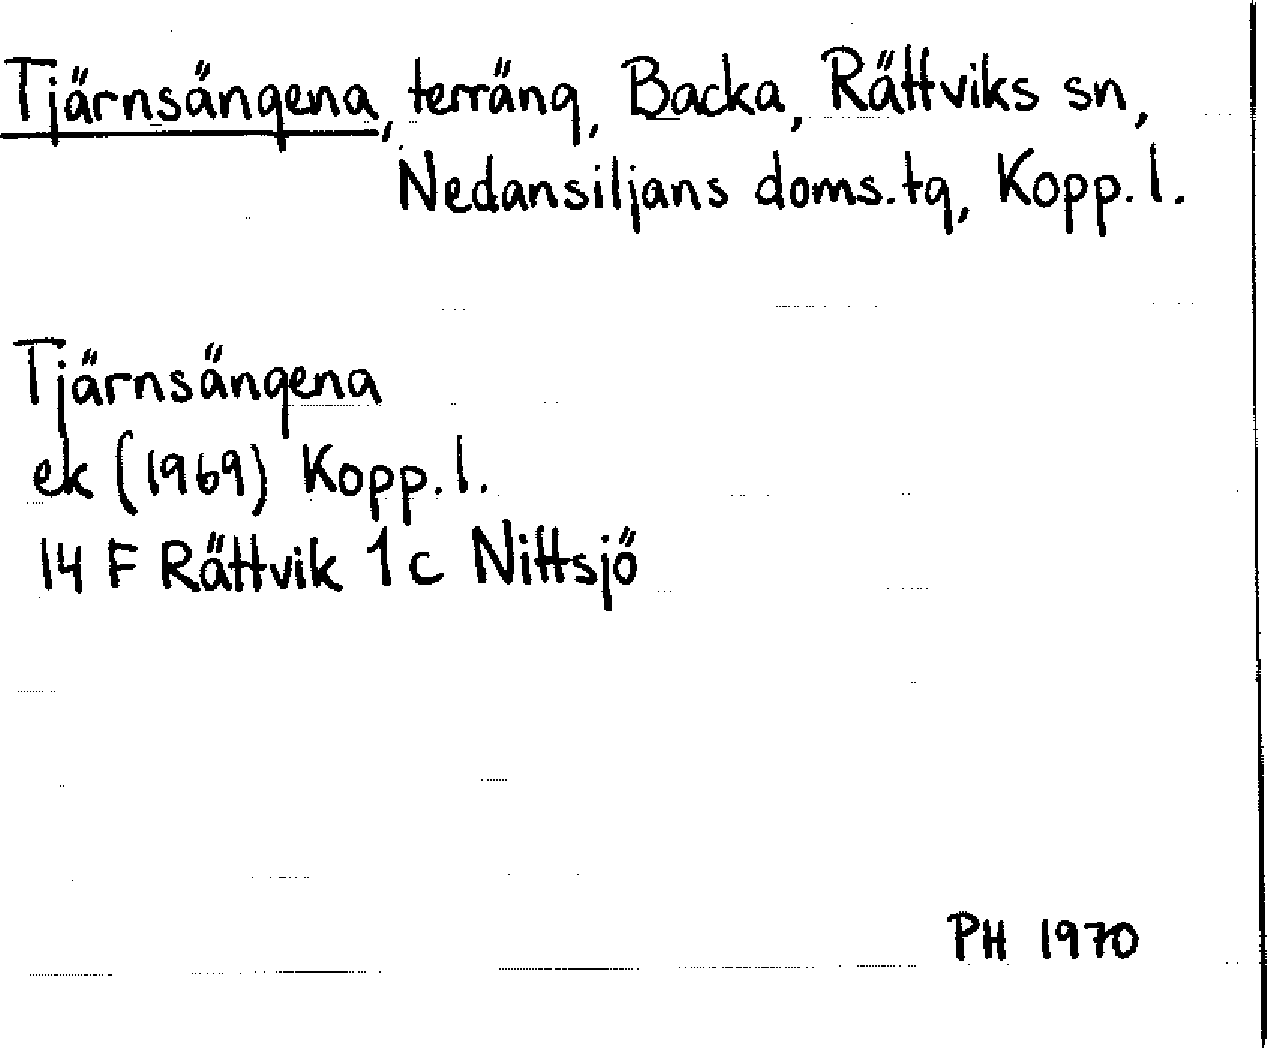 Tjärnsängena, terräng, Backa, Rättviks sn,
Nedansiljans doms.tg, Kopp. l.
Tjärnsängena
ek (1969) Kopp. l.
14 F Rättvik 1 c Nittsjö
PH 1970